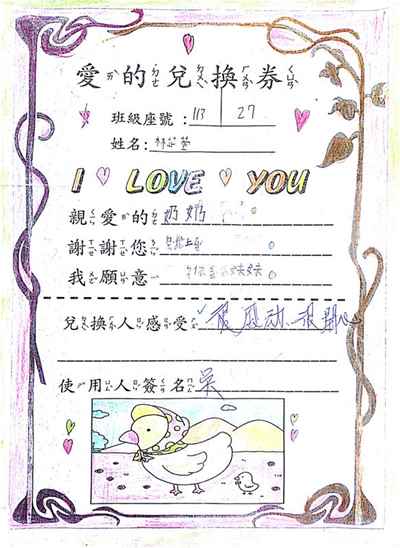 愛ㄞˋ的ㄉㄜ˙兌ㄉㄨㄟˋ換ㄏㄨㄢˋ券ㄑㄩㄢˋ
班級座號：113 27
姓名：林
I ♡ LOVE ♡ YOU
親ㄑㄧㄣ愛ㄞˋ的ㄉㄜ˙奶奶。
謝ㄒㄧㄝˋ謝ㄒㄧㄝ˙您ㄋㄧㄣˊ
我ㄨㄛˇ願ㄩㄢˋ意ㄧˋ 妹妹。
兌ㄉㄨㄟˋ換ㄏㄨㄢˋ人ㄖㄣˊ感ㄍㄢˇ受ㄕㄡˋ 很感动、很開心
使ㄕˇ用ㄩㄥˋ人ㄖㄣˊ簽ㄑㄧㄢ名ㄇㄧㄥˊ 吳